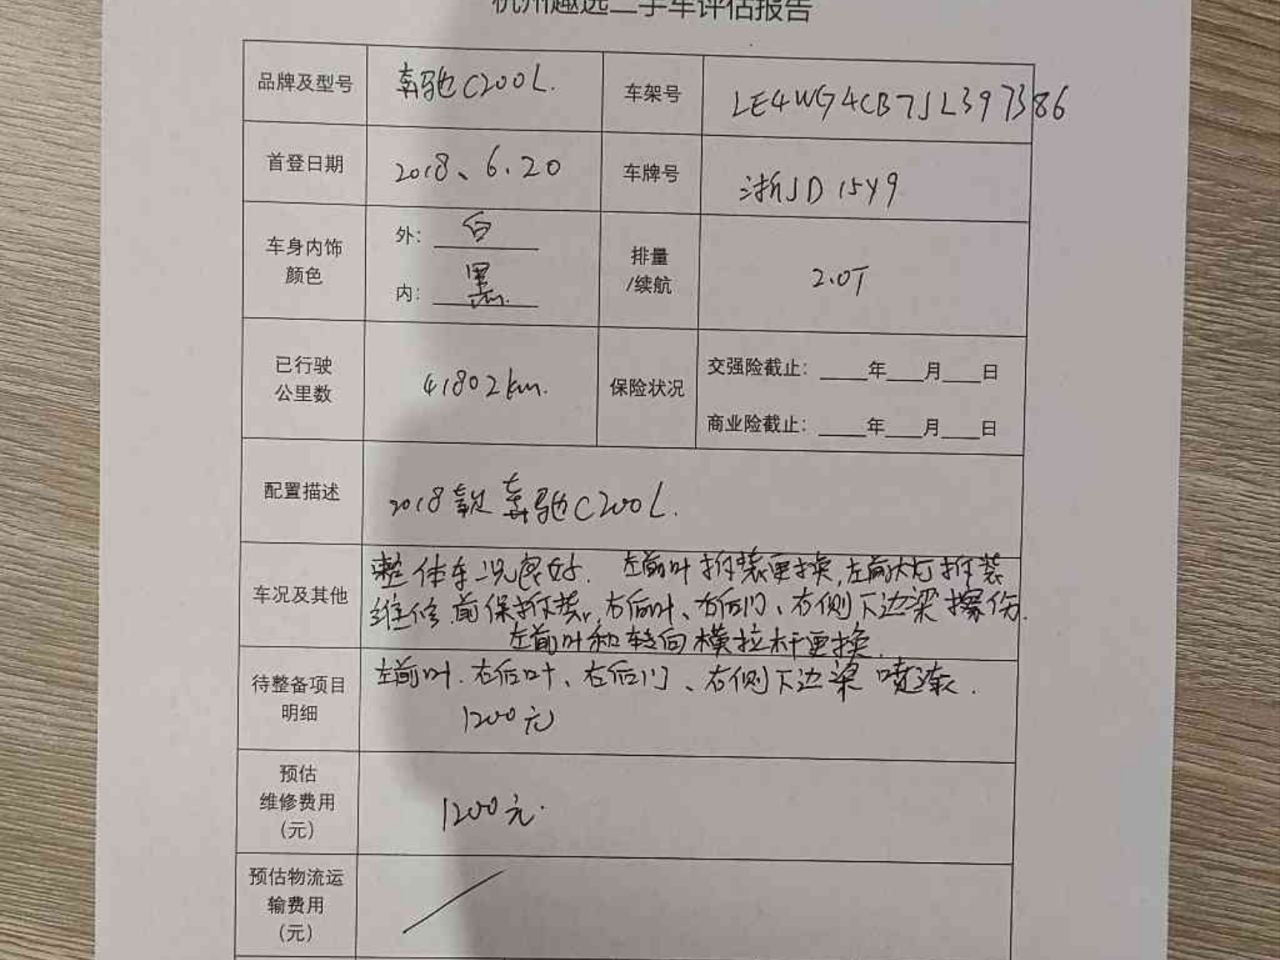 杭州趣选二手车评估报告
品牌及型号 奔驰C200L. 车架号 LE4WG4CB7JL397386
首登日期 2018、6.20 车牌号 浙JD15Y9
车身内饰颜色 外: 白 排量/续航 2.0T
内: 黑.
已行驶公里数 41802km. 保险状况 交强险截止: ____年___月___日
商业险截止: ____年___月___日
配置描述 2018款奔驰C200L.
车况及其他 整体车况良好. 左前叶拆装更换,左前大灯拆装
维修.前保拆装,右后叶、右后门、右侧下边梁擦伤.
左前叶和转向横拉杆更换.
待整备项目明细 左前叶.右后叶、右后门、右侧下边梁喷漆.
1200元
预估维修费用(元) 1200元.
预估物流运输费用(元)